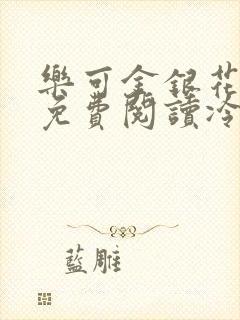 樂可金銀花
免費閱讀冷
藍雕